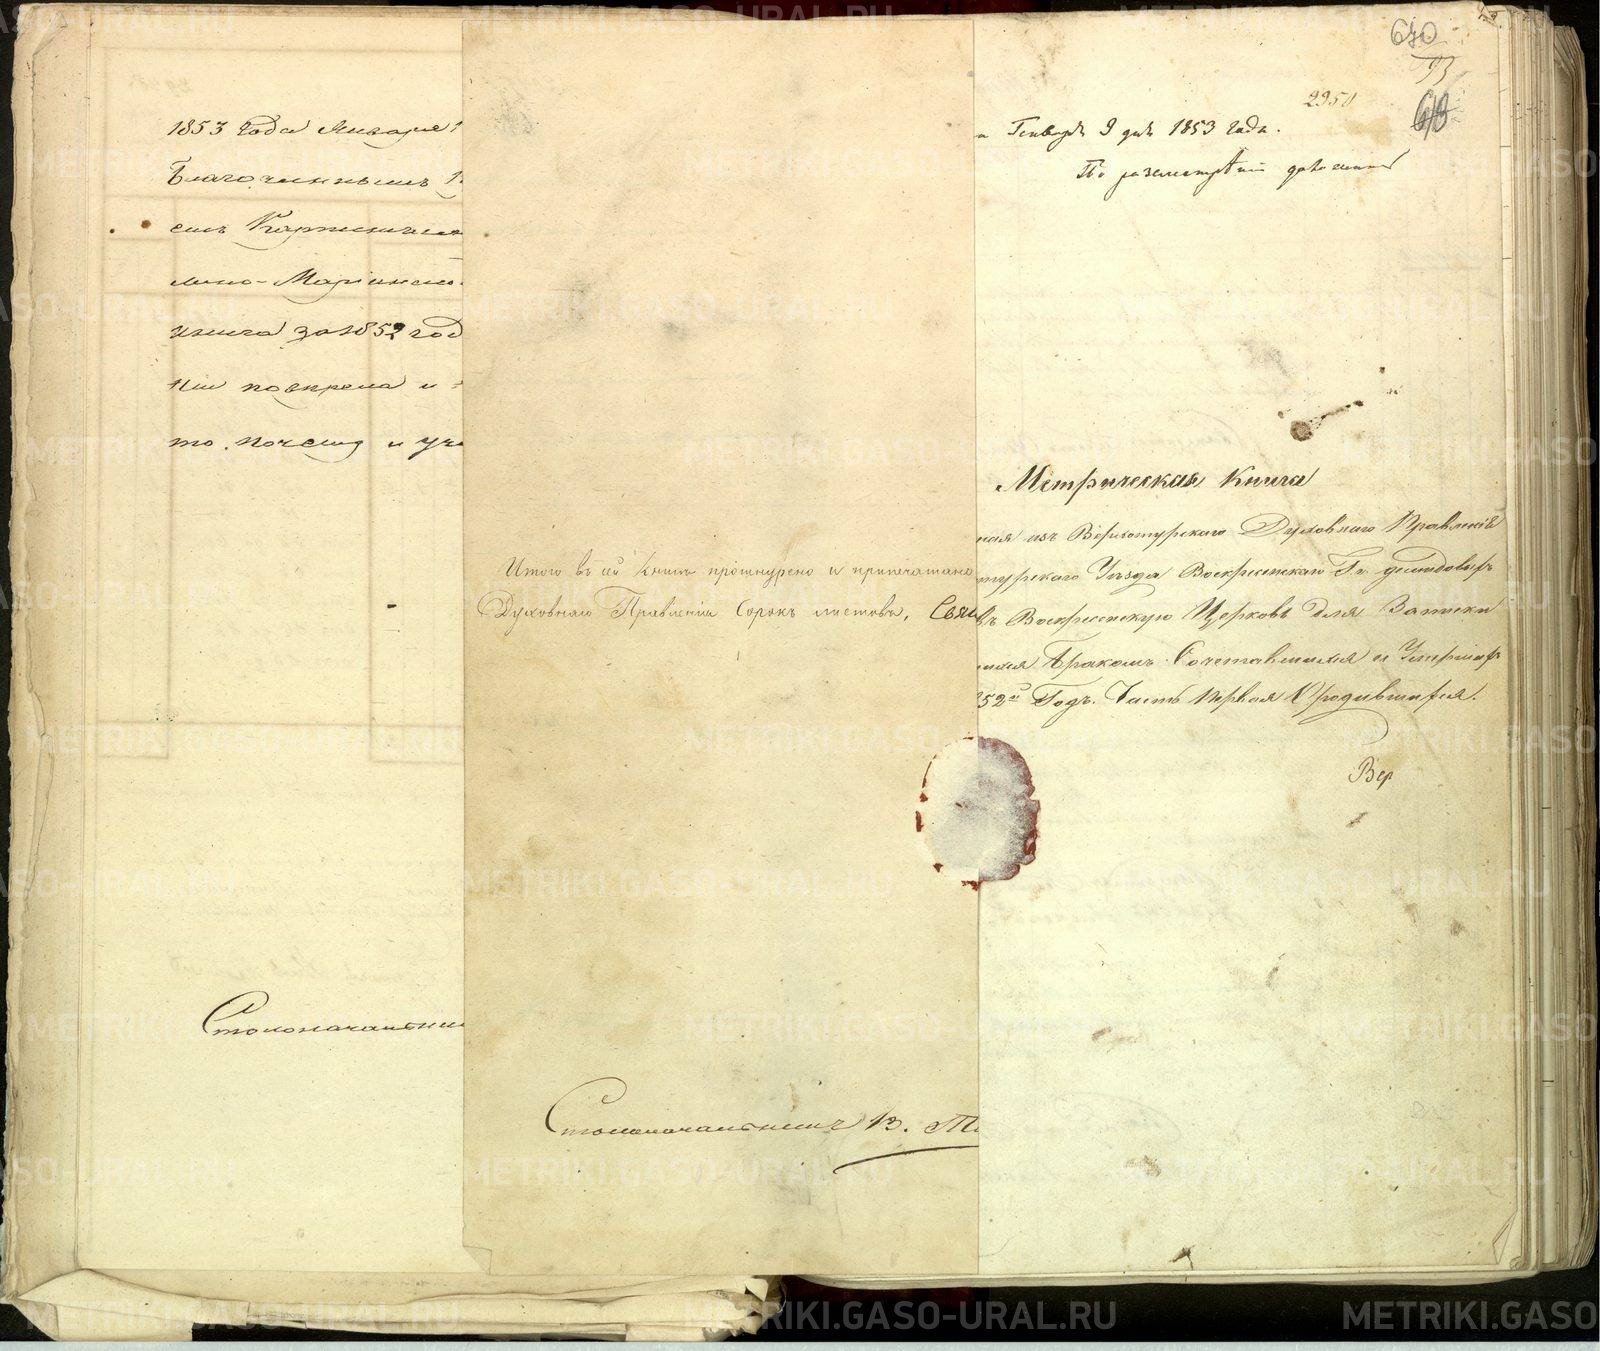 1853 года Января
Благочиннымъ
емъ
лино-Маріинско
книга за 1852 год
ни повѣрена и
то. почему и уч
Столоначальник
Итого въ сей Книгѣ прошнурено и припечатано
Духовнаго Правленія Сорокъ листовъ, Свя
Столоначальникъ В. Т
640
93
2950
Генваря 9 дня 1853 года.
По разсмотрѣніи
Метрическая Книга
ная изъ Верхотурскаго Духовнаго Правленія
турскаго Уѣзда Воскресенскаго
въ Воскресенскую Церковь для Записки
Бракомъ Сочетавшихся и Умерших
852й Годъ. Часть Первая О родившихся.
Вер
METRIKI.GASO-URAL.RU